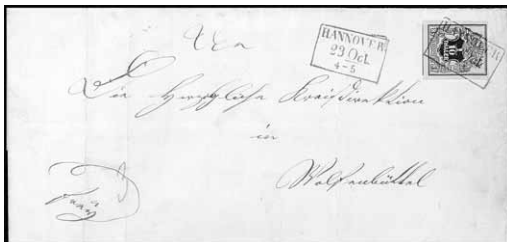 An
HANNOVER
23 Oct.
4-5
HANNOVER
Die Herzogliche Kreisdirektion
in
Wolfenbüttel